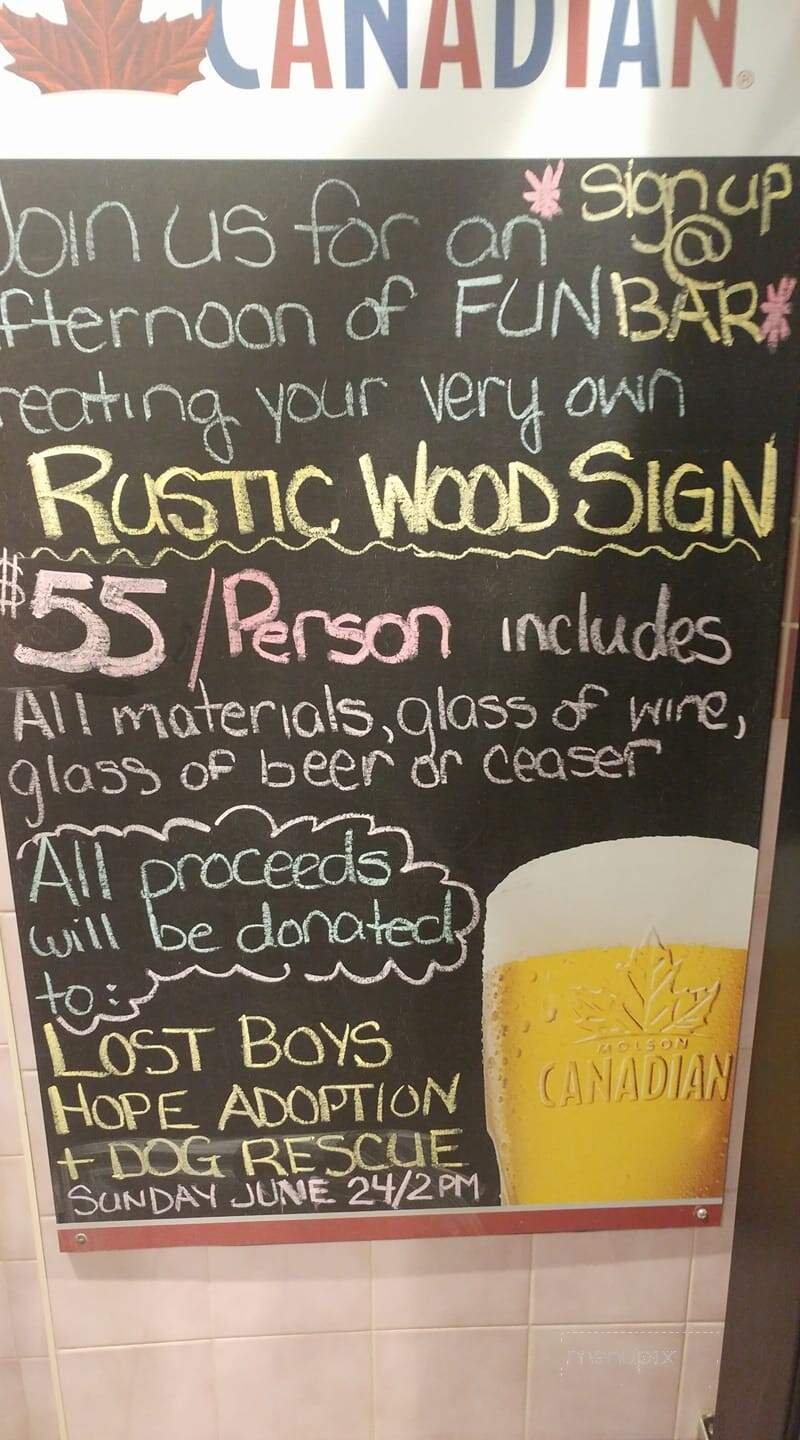 CANADIAN®
Join us for an
*Sign up
@
BAR*
fternoon of FUN
reating your very own
RUSTIC WOOD SIGN
$55/Person includes
All materials, glass of wine,
glass of beer or ceaser
All proceeds
will be donated
to:
LOST BOYS
HOPE ADOPTION
+ DOG RESCUE
SUNDAY JUNE 24/2PM
MOLSON
CANADIAN
menupix